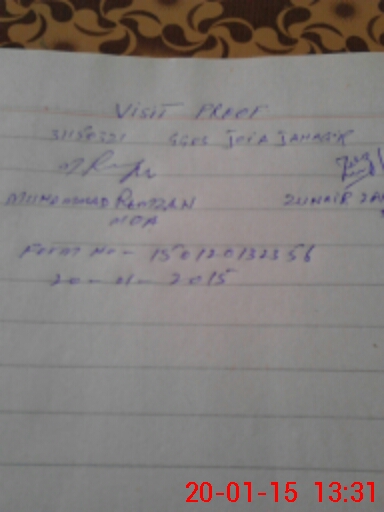 VISIT PRAOF
31150321 GGES JOYA JAHAGIR
MUHAMMAD RAMZAN ZUNAIR ZA
MOA
FORM No - 150120132356
20-01-2015
20-01-15 13:31